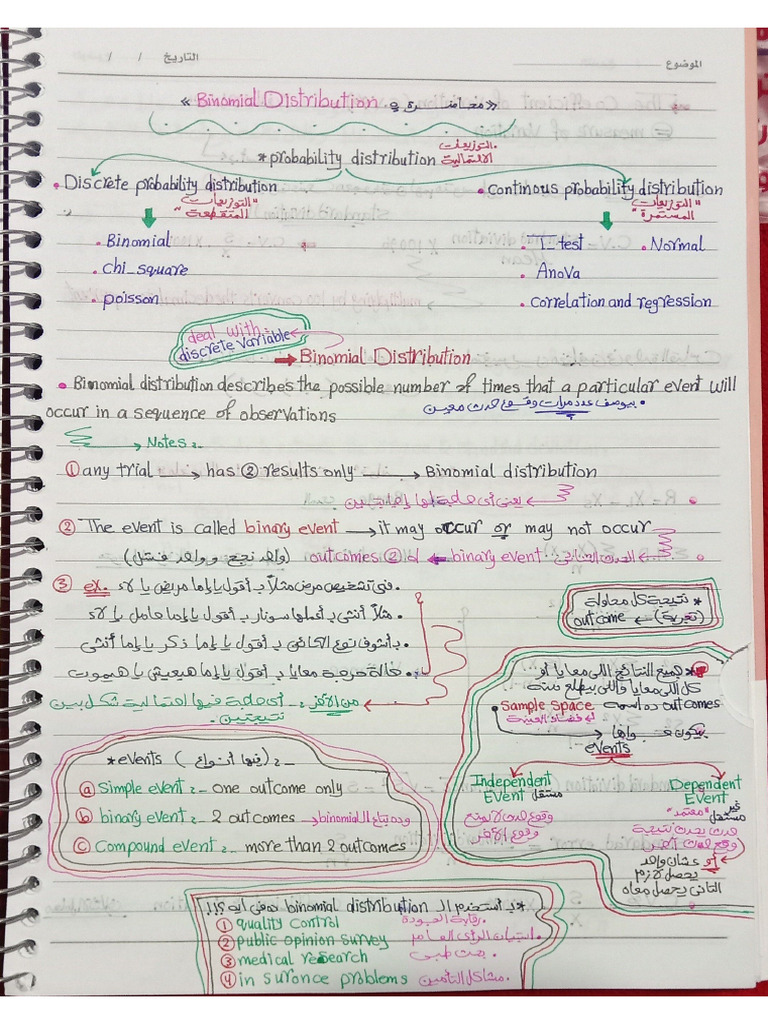 الموضوع
التاريخ / /
« Binomial Distribution محاضرة »
* probability distribution التوزيعات
الاحتمالية
• Discrete probability distribution
"التوزيعات
المتقطعة"
• Binomial
• chi_square
• poisson
• continous probability distribution
"التوزيعات
المستمرة"
• T_test • Normal
• Anova
• correlation and regression
deal with
discrete variable
→ Binomial Distribution
• Binomial distribution describes the possible number of times that a particular event will
occur in a sequence of observations
• بيوصف عدد مرات وقوع حدث معين
→ Notes :-
① any trial → has ② results only → Binomial distribution
يعني أي حاجة لها إجابتين
② The event is called binary event → it may occur or may not occur
الحدث الثنائي binary event ← له ② outcomes (واحد نجح و واحد فشل)
③ ex. • في تشخيص مرض مثلاً بـ أقول يا إما مريض يا لاء
• مثلاً أنثى بـ أعملها سونار بـ أقول يا إما حامل يا لاء
• بـ أشوف نوع الكائن بـ أقول يا إما ذكر يا إما أنثى
• حالة حرجة معايا بـ أقول يا إما هيعيش يا هيموت
من الآخر :- أي حاجة فيها احتمالية شكل بين
نتيجتين
* نتيجة كل محاولة
(تجربة) → outcome
* جميع النتائج اللي معايا أو
كل اللي معايا واللي بيطلع منه
outcomes ده اسمه Sample space
أي فضاء العينة
بيكون فـ جواها
events
Independent
Event مستقل
وقوع حدث لا يمنع
وقوع الآخر
Dependent
Event غير
مستقل "معتمد"
حدث يحدث نتيجة
وقع حدث آخر
أو عشان واحد
يحصل لازم
التاني يحصل معاه
* events ( فيها أنواع ) :-
ⓐ Simple event :- one outcome only
ⓑ binary event :- 2 outcomes وده بتاع الـ binomial
ⓒ Compound event :- more than 2 outcomes
* بـ أستخدم الـ binomial distribution ده في ايه ؟!!
① quality control رقابة الجودة
② public opinion survey استبيان الرأي العام
③ medical research بحث طبي
④ in suronce problems مشاكل التأمين